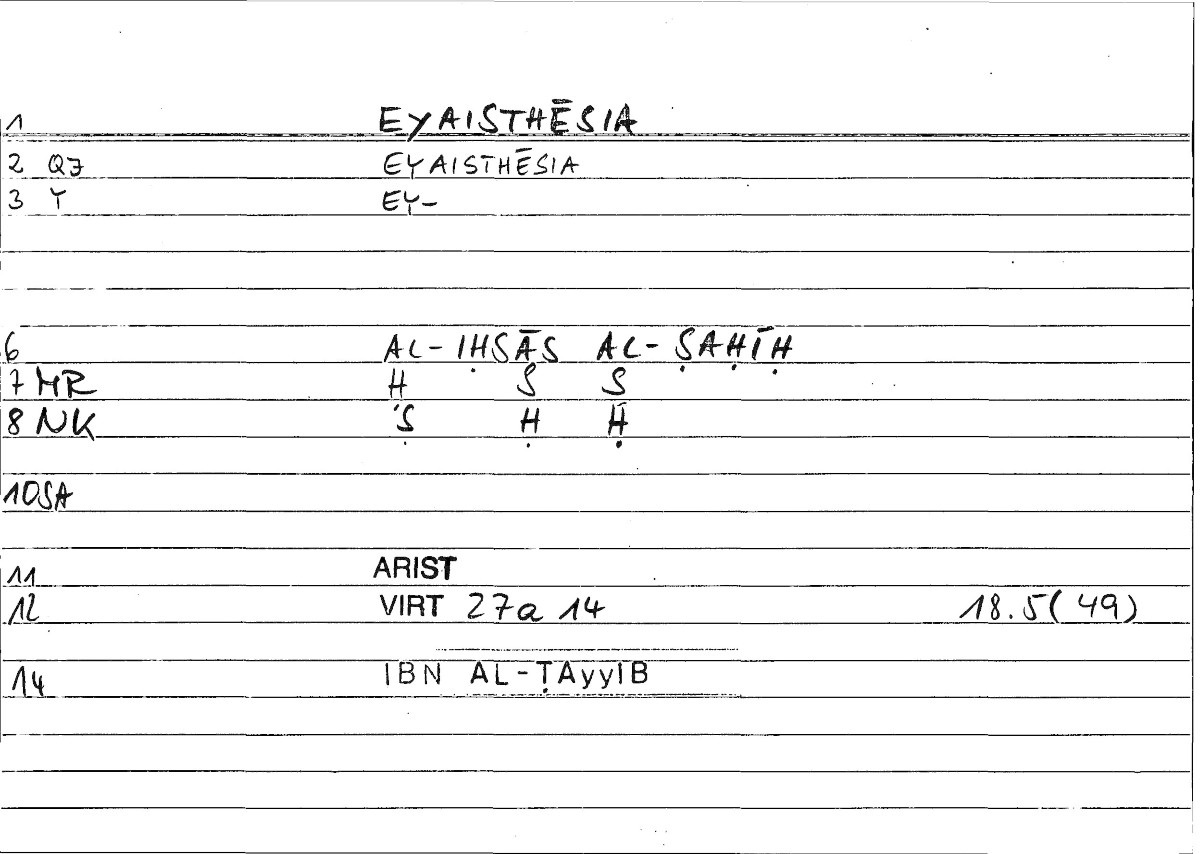 1 EYAISTHĒSIA
2 QJ EYAISTHĒSIA
3 Y EY-
6 AL-IḤSĀS AL-ṢAḤĪḤ
7 MR Ḥ S S
8 NK Ṣ Ḥ Ḥ
10 SA
11 ARIST
12 VIRT 27a 14 18.5(49)
14 IBN AL-ṬAyyIB